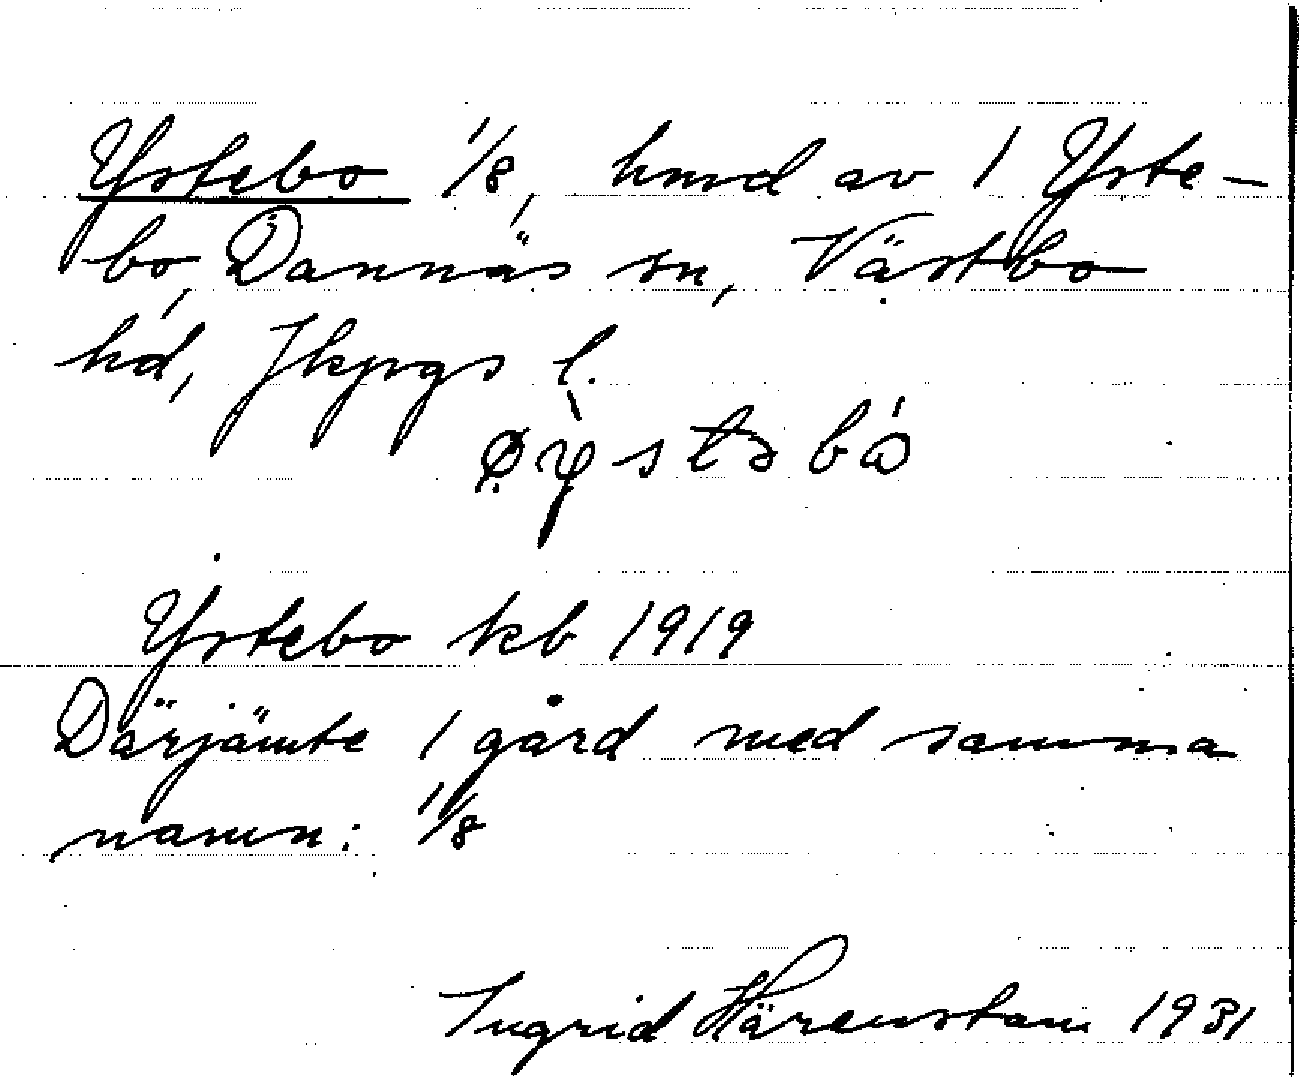 Ystebo 1/8, hmd av 1 Yste-
bo, Dannäs sn, Västbo
hd, Jkpgs l.
Ystebo kb 1919
Därjämte 1 gård med samma
namn: 1/8
Ingrid Härenstam 1931